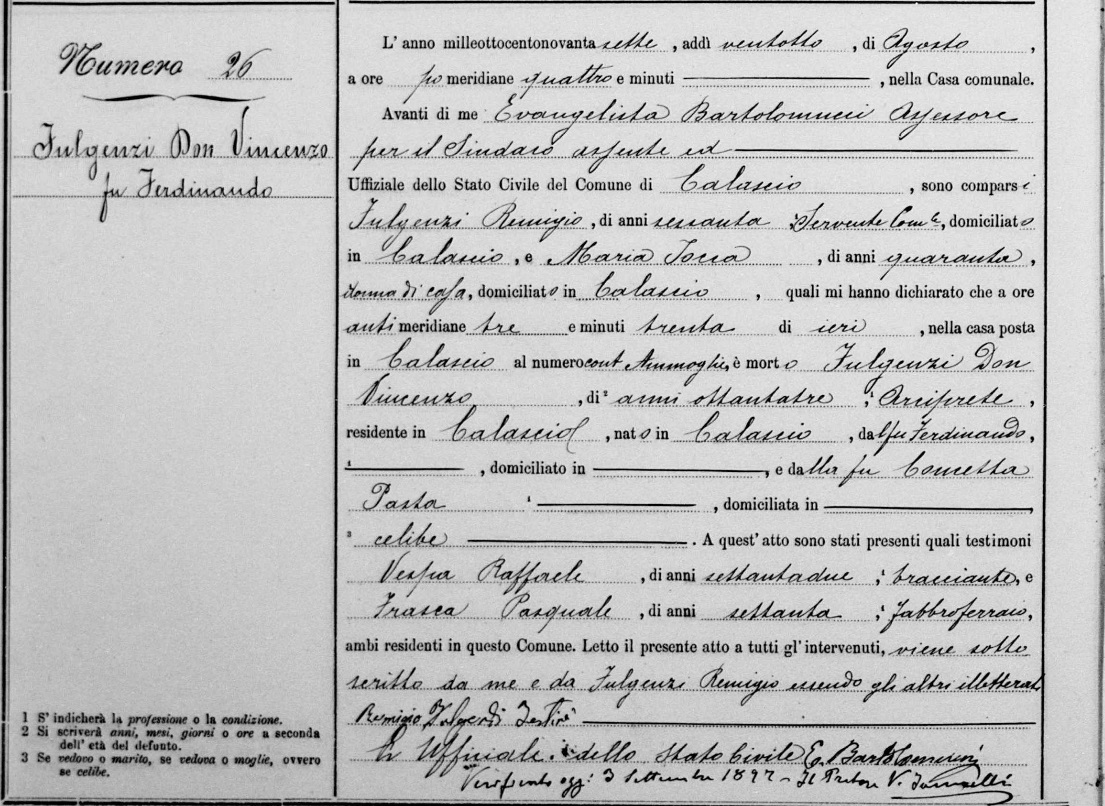 Numero 26
Fulgenzi Don Vincenzo
fu Ferdinando
L' anno milleottocentonovanta sette, addì ventotto, di Agosto,
a ore po meridiane quattro e minuti , nella Casa comunale.
Avanti di me Evangelista Bartolomucci Assessore
per il Sindaco assente ed
Uffiziale dello Stato Civile del Comune di Calascio, sono comparsi
Fulgenzi Remigio, di anni sessanta Servente Com.le, domiciliato
in Calascio, e Maria , di anni quaranta,
donna di casa, domiciliato in Calascio, quali mi hanno dichiarato che a ore
anti meridiane tre e minuti trenta di ieri, nella casa posta
in Calascio al numero , è morto Fulgenzi Don
Vincenzo, di 2 anni ottantatre, 1 Arciprete,
residente in Calascio, nato in Calascio, dal fu Ferdinando,
1 , domiciliato in , e dalla fu Concetta
Pasta 1 , domiciliata in ,
3 celibe . A quest'atto sono stati presenti quali testimoni
Vespa Raffaele, di anni settantadue, 1 bracciante, e
Frasca Pasquale, di anni settanta, 1 fabbroferraio,
ambi residenti in questo Comune. Letto il presente atto a tutti gl' intervenuti, viene sotto
scritto da me e da Fulgenzi Remigio essendo gli altri illetterati
Remigio Fulgenzi
L' Uffiziale dello Stato Civile E. Bartolomucci
Verificato oggi 3 Settembre 1897 - Il Pretore V.
1 S' indicherà la professione o la condizione.
2 Si scriverà anni, mesi, giorni o ore a seconda
dell' età del defunto.
3 Se vedovo o marito, se vedova o moglie, ovvero
se celibe.